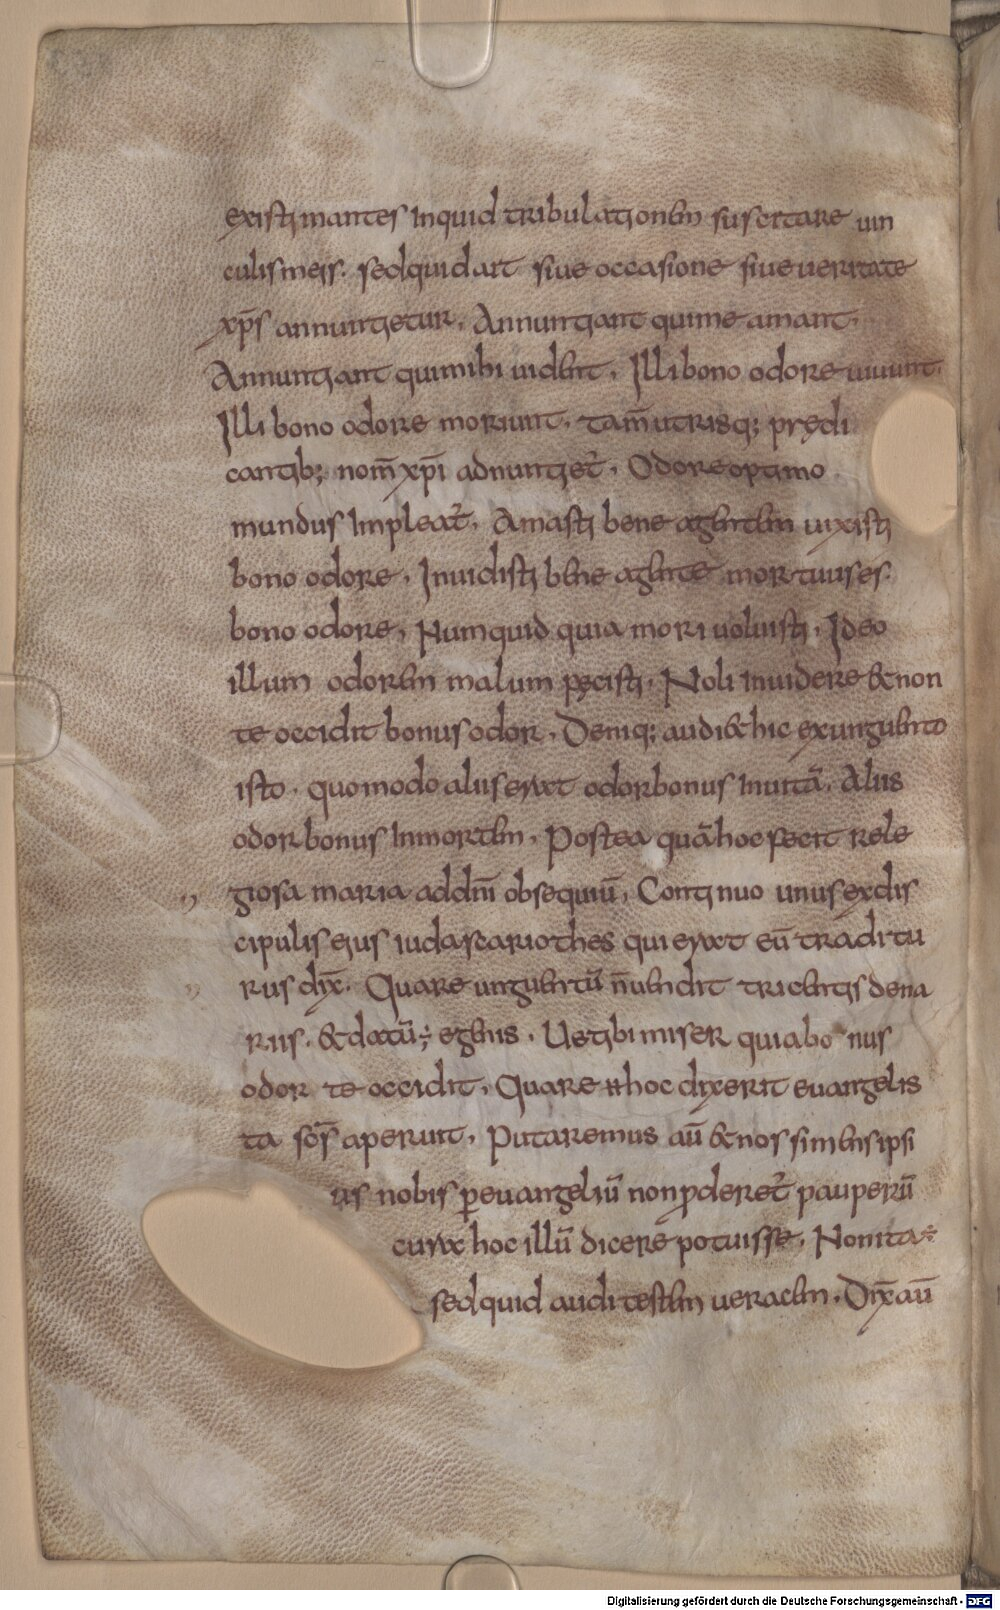 existimantes inquid tribulationem suscitare uin
culis meis. sed quid ait siue occasione siue ueritate
xp̄s annuntietur. Annuntiant qui me amant.
Annuntiant qui mihi uident. Illi bono odore uiuunt.
Illi bono odore moriunt. tam̄ utrisq; prędi
cantib; nom̄ xp̄i adnuntiet̄. Odore optimo
mundus impleat̄. Amasti bene agentem uixisti
bono odore. Inuidisti bene agente mortuus es.
bono odore. Numquid quia mori uoluisti. Ideo
illum odorem malum fecisti. Noli inuidere & non
te occidit bonus odor. Deniq; audi & hic ex unguento
isto. quomodo aliis erat odor bonus in uitā. Aliis
odor bonus in mortem. Postea quā hoc fecit rele
giosa maria ad dn̄i obsequiū. Continuo unus ex dis
cipulis eius iudas cariothes qui erat eū traditu
rus dix̄. Quare unguentū n̄ uendit tricentis dena
riis. & datū ÷ egenis. Ue tibi miser quia bo nus
odor te occidit. Quare hoc dixerit euangelis
ta sc̄s aperuit. Putaremus aū & nos si mens ipsi
us nobis p euangeliū non pderet̄ pauperū
cura hoc illū dicere potuisse. Non ita ÷
sed quid audi testem ueracem. Dix̄ aū
Digitalisierung gefördert durch die Deutsche Forschungsgemeinschaft - DFG